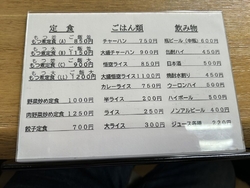 定食
もつ煮定食 (A) 850円
もつ煮定食 (B) 1150円
もつ煮定食 (C) 900円
もつ煮定食 (LL) 1200円
野菜炒め定食 1000円
肉野菜炒め定食 1250円
餃子定食 700円
ごはん類
チャーハン 700円
大盛チャーハン 900円
悟空ライス 850円
大盛悟空ライス 1100円
カレーライス 750円
半ライス 200円
ライス 250円
大ライス 300円
飲み物
瓶ビール (中瓶) 600円
酎ハイ 450円
日本酒 500円
焼酎水割り 450円
ウーロンハイ
ハイボール 500円
ノンアルビール 400円
ジュース各種 230円